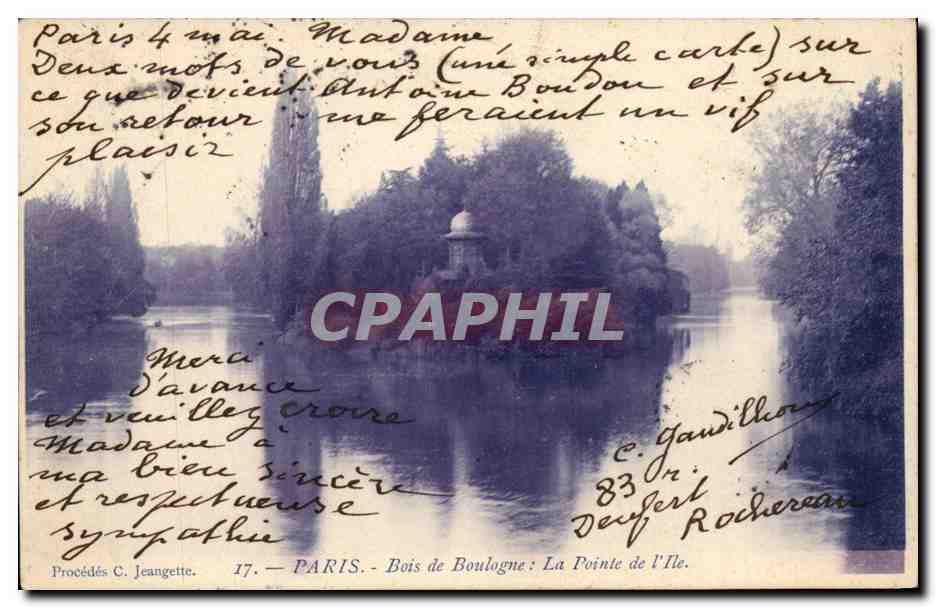 Paris 4 mai. Madame
Deux mots de vous (une simple carte) sur
ce que devient Antoine Boudou et sur
son retour me feraient un vif
plaisir
CPAPHIL
Merci
d'avance
et veuillez croire
Madame à
ma bien sincère
et respectueuse
sympathie
C. Gaudilhon
83 r.
Denfert
Rochereau
Procédés C. Jeangette.
17. — PARIS. - Bois de Boulogne : La Pointe de l'Ile.